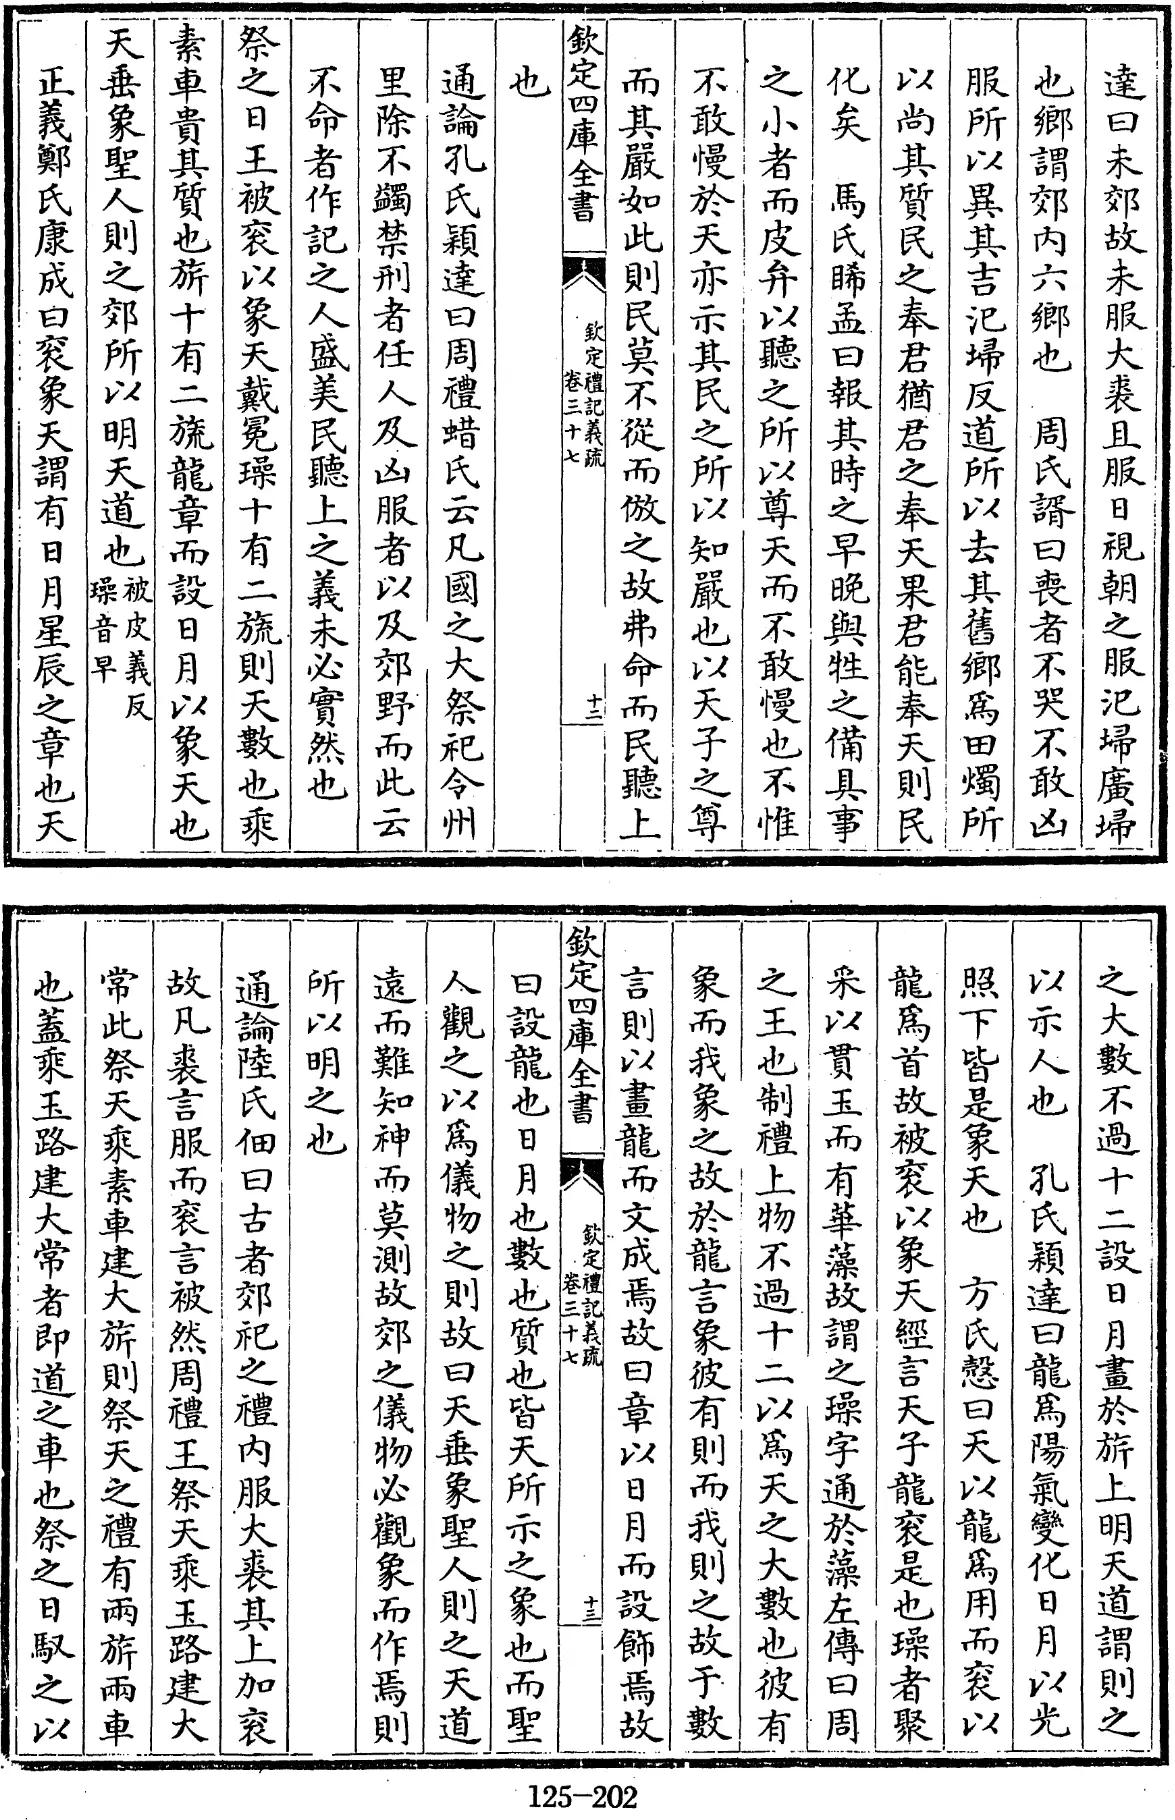 達曰未郊故未服大裘且服日視朝之服氾埽廣埽
也鄉謂郊内六鄉也　周氏諝曰喪者不哭不敢凶
服所以異其吉氾埽反道所以去其舊鄉為田燭所
以尚其質民之奉君猶君之奉天果君能奉天則民
化矣　馬氏睎孟曰報其時之早晚與牲之備具事
之小者而皮弁以聽之所以尊天而不敢慢也不惟
不敢慢於天亦示其民之所以知嚴也以天子之尊
而其嚴如此則民莫不從而倣之故弗命而民聽上
欽定四庫全書
欽定禮記義疏
卷三十七
十二
也
通論孔氏穎達曰周禮蜡氏云凡國之大祭祀令州
里除不蠲禁刑者任人及凶服者以及郊野而此云
不命者作記之人盛美民聽上之義未必實然也
祭之日王被袞以象天戴冕璪十有二旒則天數也乘
素車貴其質也旂十有二旒龍章而設日月以象天也
天垂象聖人則之郊所以明天道也被皮義反
璪音早
正義鄭氏康成曰袞象天謂有日月星辰之章也天
之大數不過十二設日月畫於旂上明天道謂則之
以示人也　孔氏穎達曰龍為陽氣變化日月以光
照下皆是象天也　方氏慤曰天以龍為用而袞以
龍為首故被袞以象天經言天子龍袞是也璪者聚
采以貫玉而有華藻故謂之璪字通於藻左傳曰周
之王也制禮上物不過十二以為天之大數也彼有
象而我象之故於龍言象彼有則而我則之故于數
言則以畫龍而文成焉故曰章以日月而設飾焉故
欽定四庫全書
欽定禮記義疏
卷三十七
十三
曰設龍也日月也數也質也皆天所示之象也而聖
人觀之以為儀物之則故曰天垂象聖人則之天道
遠而難知神而莫測故郊之儀物必觀象而作焉則
所以明之也
通論陸氏佃曰古者郊祀之禮内服大裘其上加袞
故凡裘言服而袞言被然周禮王祭天乘玉路建大
常此祭天乘素車建大旂則祭天之禮有兩旂兩車
也蓋乘玉路建大常者即道之車也祭之日馭之以
125-202